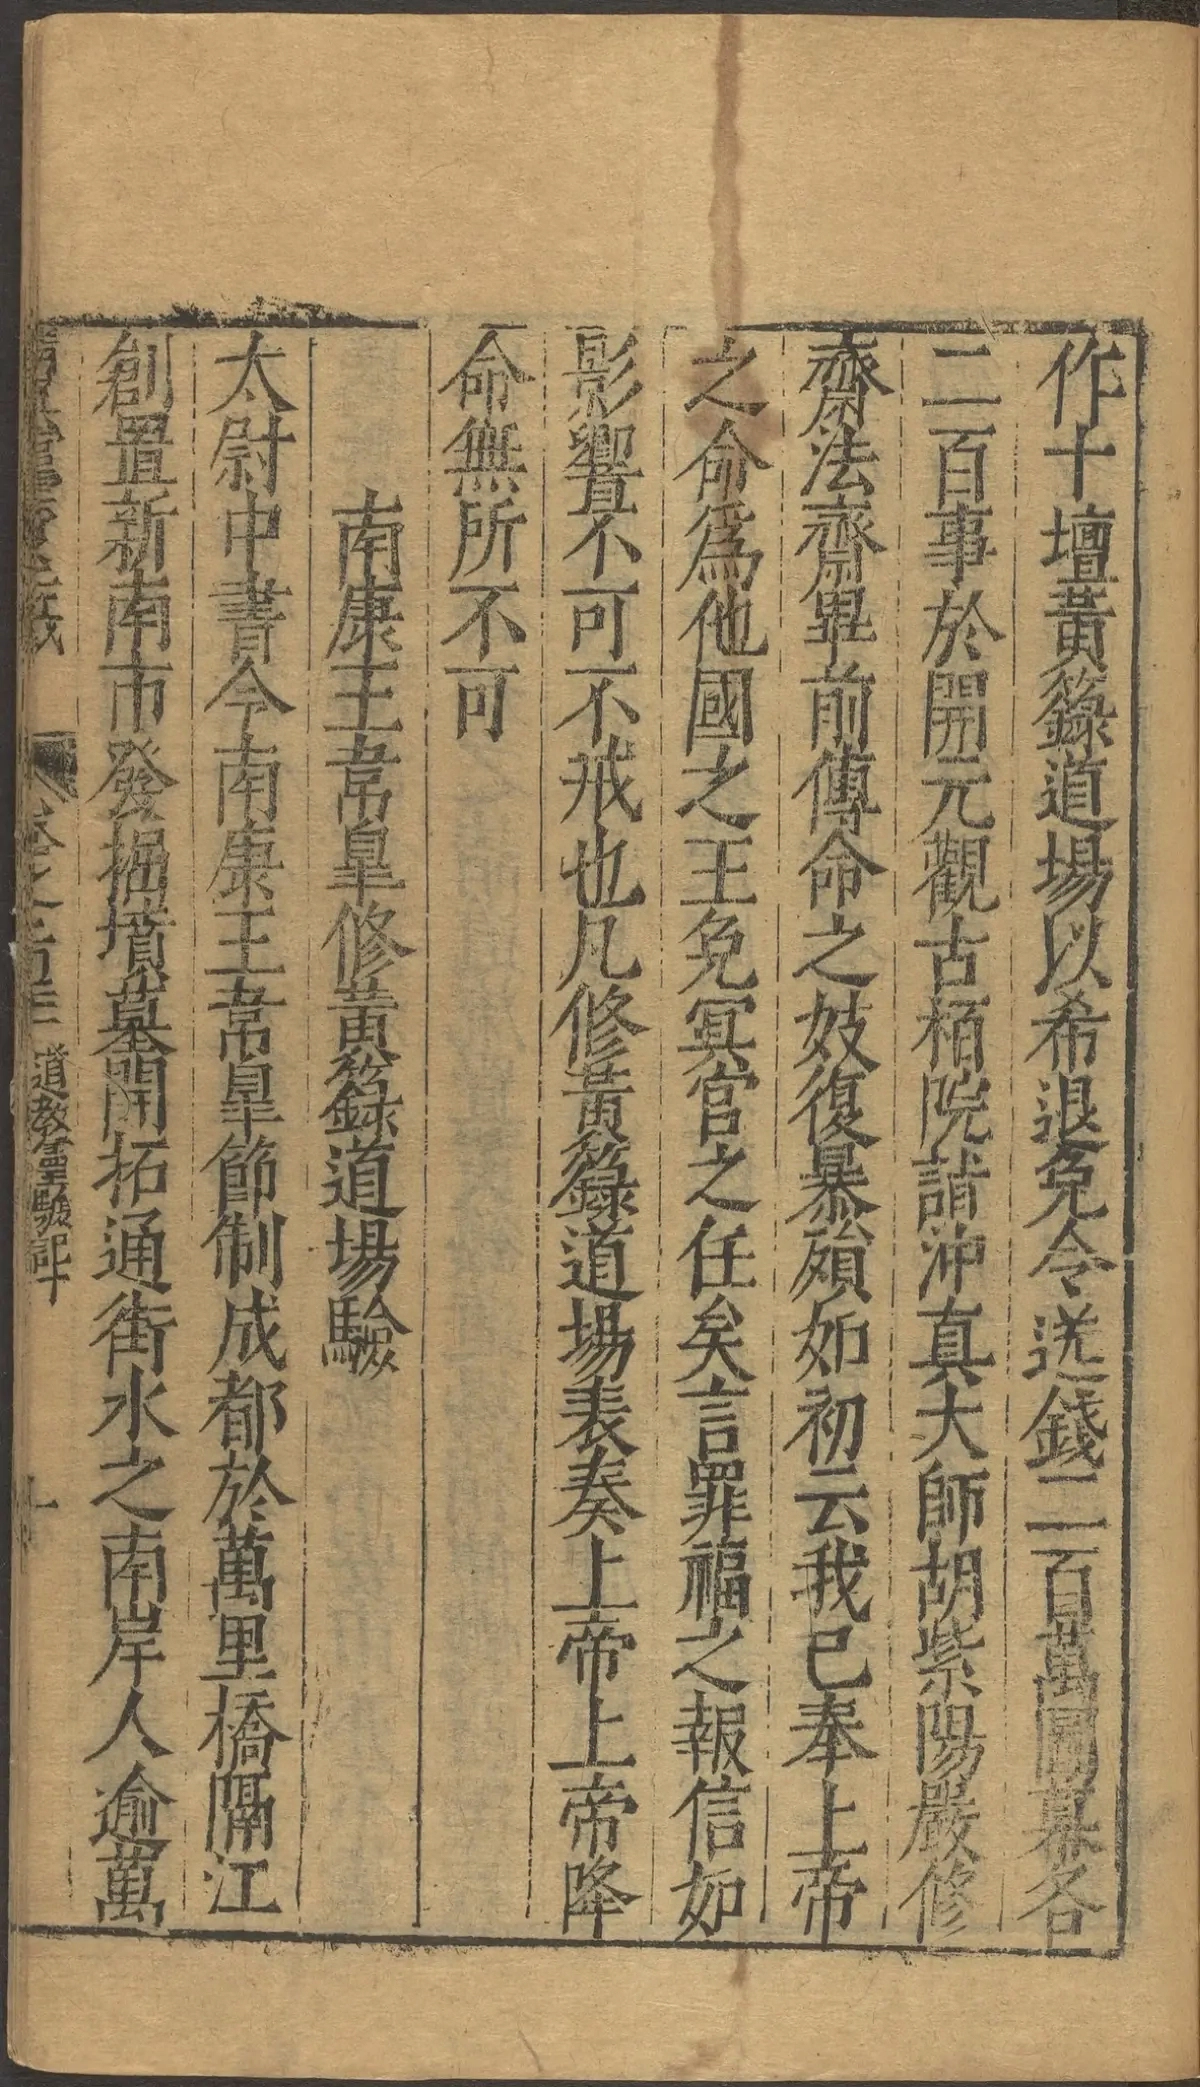 作十壇黃籙道場以希退免令送錢二百萬圖幕各
二百事於開元觀古栢院請沖真大師胡紫陽嚴修
齋法齋畢前傳命之妓復暴殞如初云我已奉上帝
之命為他國之王免冥官之任矣言罪福之報信如
影響不可不戒也凡修黃籙道場表奏上帝上帝降
命無所不可
南康王韋皐修黃籙道場驗
太尉中書令南康王韋皐節制成都於萬里橋隔江
創置新南市發掘墳墓開拓通街水之南岸人逾萬
卷之百二十一 道教靈驗記 十